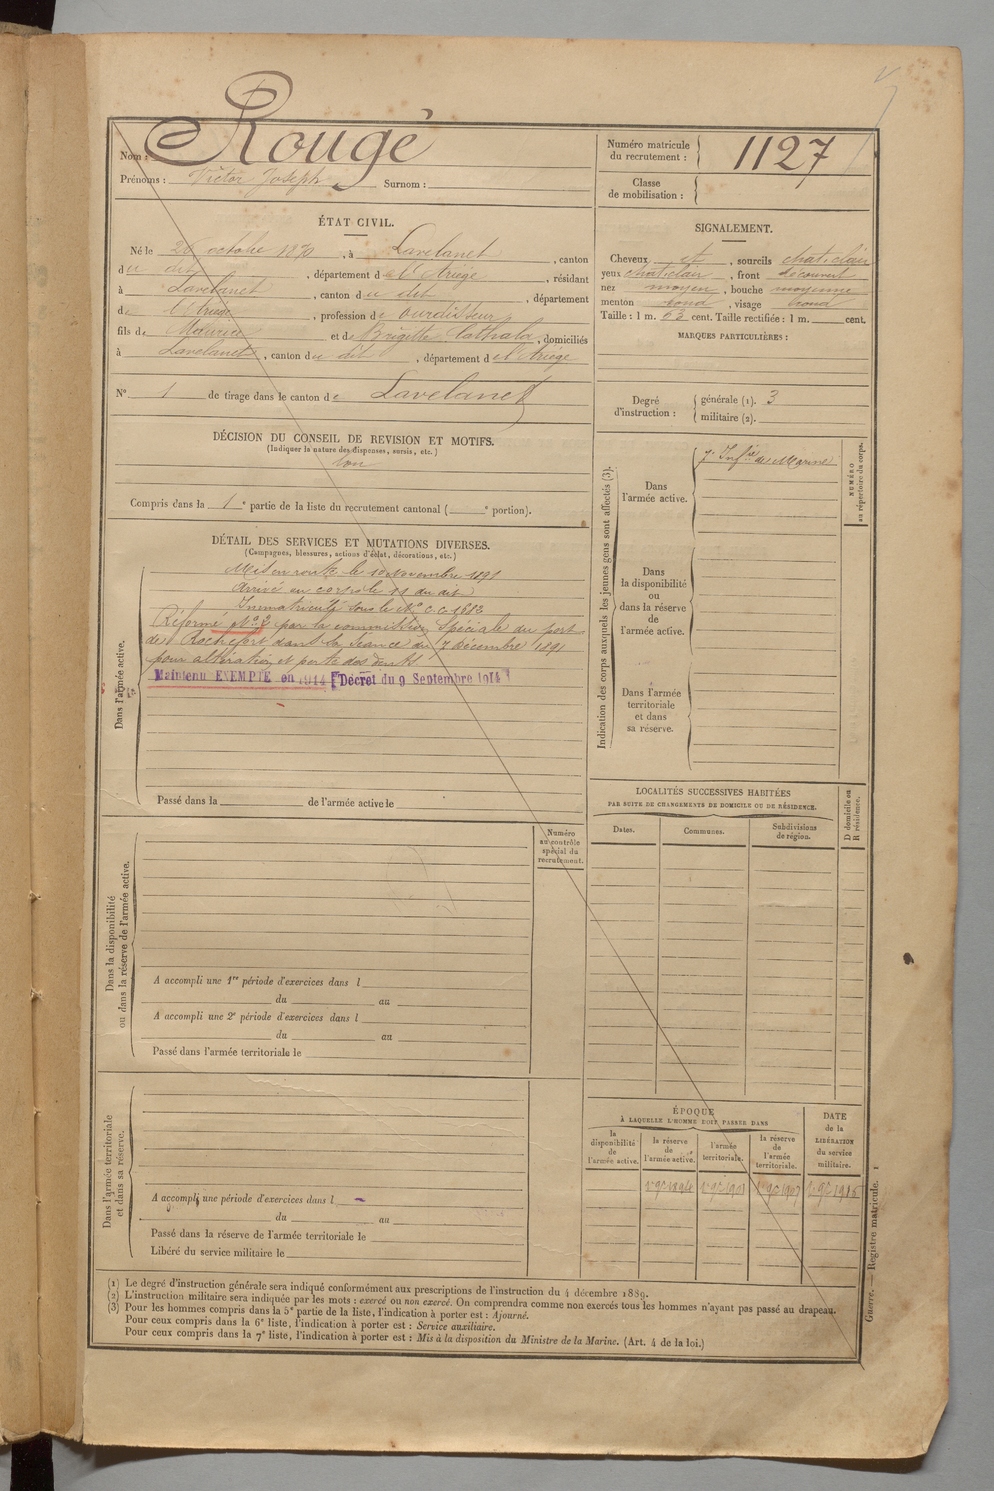 Nom : Rougé
Prénoms : Victor Joseph Surnom :
Numéro matricule du recrutement : 1127
Classe de mobilisation :
ÉTAT CIVIL.
Né le octobre 1870, à Lavelanet, canton
du dit, département de l'Ariège, résidant
à Lavelanet, canton du dit, département
de l'Ariège, profession de Ourdisseur
fils de Maurice et de Brigitte Cathala, domiciliés
à Lavelanet, canton du dit, département de l'Ariège
N° 1 de tirage dans le canton de Lavelanet
DÉCISION DU CONSEIL DE REVISION ET MOTIFS.
(Indiquer la nature des dispenses, sursis, etc.)
bon
Compris dans la 1e partie de la liste du recrutement cantonal ( e portion).
SIGNALEMENT.
Cheveux et, sourcils chat. clair
yeux chat. clair, front découvert
nez moyen, bouche moyenne
menton rond, visage rond
Taille : 1 m. 63 cent. Taille rectifiée : 1 m. cent.
MARQUES PARTICULIÈRES :
Degré d'instruction :
générale (1). 3
militaire (2).
DÉTAIL DES SERVICES ET MUTATIONS DIVERSES.
(Campagnes, blessures, actions d'éclat, décorations, etc.)
Dans l'armée active.
Mis en route le 10 Novembre 1891
Arrivé au corps le 11 du dit
Immatriculé sous le N° C.C. 1682
Réformé N° 2 par la commission spéciale du port
de Rochefort dans la séance du 7 Décembre 1891
pour altération et perte des dents
Maintenu EXEMPTÉ en 1914 [Décret du 9 Septembre 1914]
Passé dans la de l'armée active le
Indication des corps auxquels les jeunes gens sont affectés (3).
Dans l'armée active.
7e Infie de Marine
NUMÉRO au répertoire du corps.
Dans la disponibilité ou dans la réserve de l'armée active.
Dans l'armée territoriale et dans sa réserve.
LOCALITÉS SUCCESSIVES HABITÉES
PAR SUITE DE CHANGEMENTS DE DOMICILE OU DE RÉSIDENCE.
Dates.
Communes.
Subdivisions de région.
D domicile ou R résidence.
Numéro au contrôle spécial du recrutement.
Dans la disponibilité ou dans la réserve de l'armée active.
A accompli une 1re période d'exercices dans l
du au
A accompli une 2e période d'exercices dans l
du au
Passé dans l'armée territoriale le
Dans l'armée territoriale et dans sa réserve.
A accompli une période d'exercices dans l
du au
Passé dans la réserve de l'armée territoriale le
Libéré du service militaire le
ÉPOQUE
À LAQUELLE L'HOMME DOIT PASSER DANS
la disponibilité de l'armée active.
la réserve de l'armée active.
l'armée territoriale.
la réserve de l'armée territoriale.
DATE de la LIBÉRATION du service militaire.
(1) Le degré d'instruction générale sera indiqué conformément aux prescriptions de l'instruction du 4 décembre 1889.
(2) L'instruction militaire sera indiquée par les mots : exercé ou non exercé. On comprendra comme non exercés tous les hommes n'ayant pas passé au drapeau.
(3) Pour les hommes compris dans la 5e partie de la liste, l'indication à porter est : Ajourné.
Pour ceux compris dans la 6e liste, l'indication à porter est : Service auxiliaire.
Pour ceux compris dans la 7e liste, l'indication à porter est : Mis à la disposition du Ministre de la Marine. (Art. 4 de la loi.)
Guerre. — Registre matricule. 1